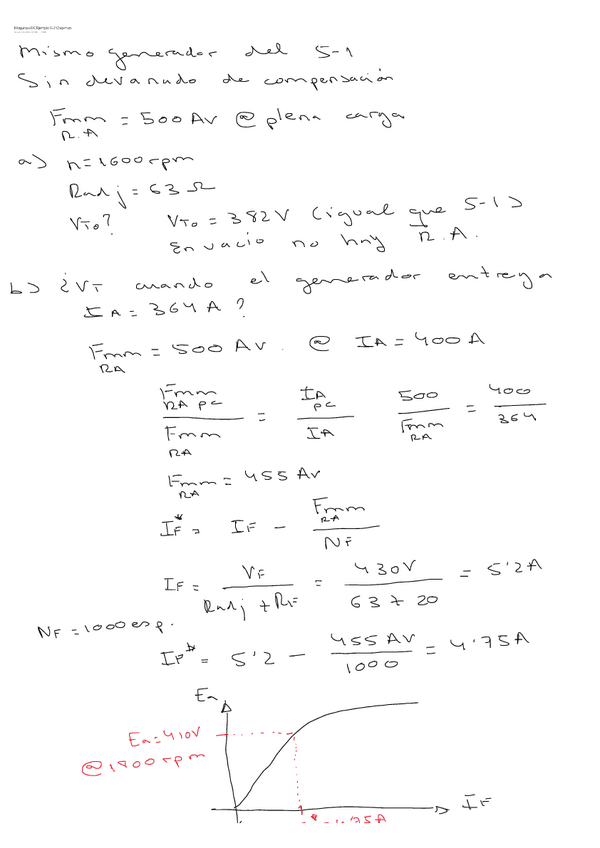 Mismo generador del 5-1
Sin devanado de compensación
Fmm R.A = 500 Av @ plena carga
a) n=1600rpm
Radj = 63 Ω
VTo? VTo = 382V (igual que 5-1)
En vacío no hay R.A.
b) ¿VT cuando el generador entrega
IA = 364 A ?
Fmm RA = 500 Av. @ IA = 400 A
Fmm RA pc / Fmm RA = IA pc / IA 500 / Fmm RA = 400 / 364
Fmm RA = 455 Av
IF* = IF - Fmm RA / NF
IF = VF / Radj + RF = 430V / 63 + 20 = 5'2A
NF = 1000 esp.
IF* = 5'2 - 455 AV / 1000 = 4'75A
Ea
Ea=410V
@1800rpm
IF